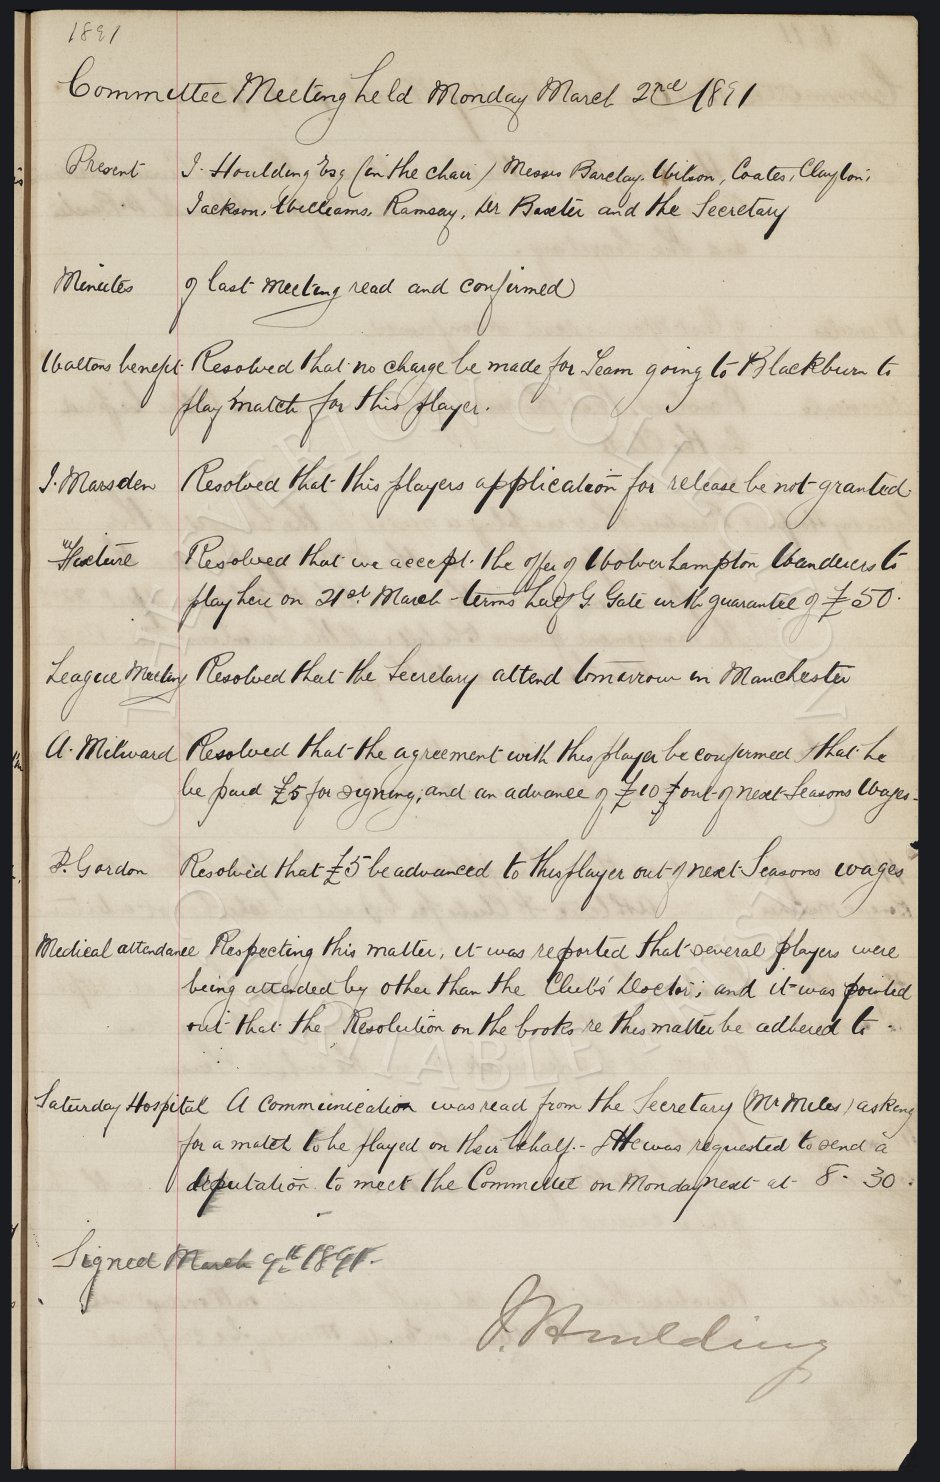 1891
Committee Meeting held Monday March 2nd 1891
Present J. Houlding Esq (in the chair) Messrs Barclay, Wilson, Coates, Clayton,
Jackson, Williams, Ramsay, Dr Baxter and the Secretary
Minutes of last meeting read and confirmed
Waltons benefit Resolved that no charge be made for Team going to Blackburn to
play match for this player.
J. Marsden Resolved that this players application for release be not granted
Fixture Resolved that we accept the offer of Wolverhampton Wanderers to
play here on 21st March - terms half G. Gate with guarantee of £50.
League Meeting Resolved that the Secretary attend tomorrow in Manchester
A. Milward Resolved that the agreement with this player be confirmed & that he
be paid £5 for signing, and an advance of £10 out of next Seasons Wages -
P. Gordon Resolved that £5 be advanced to this player out of next Seasons wages
Medical attendance Respecting this matter, it was reported that several players were
being attended by other than the Club's Doctor; and it was pointed
out that the Resolution on the books re this matter be adhered to -
Saturday Hospital A communication was read from the Secretary (Mr Miles) asking
for a match to be played on their behalf. - & He was requested to send a
deputation to meet the Committee on Monday next at 8.30.
Signed March 9th 1891.
J. Houlding
EVERTON COLLECTION
CHARITABLE TRUST